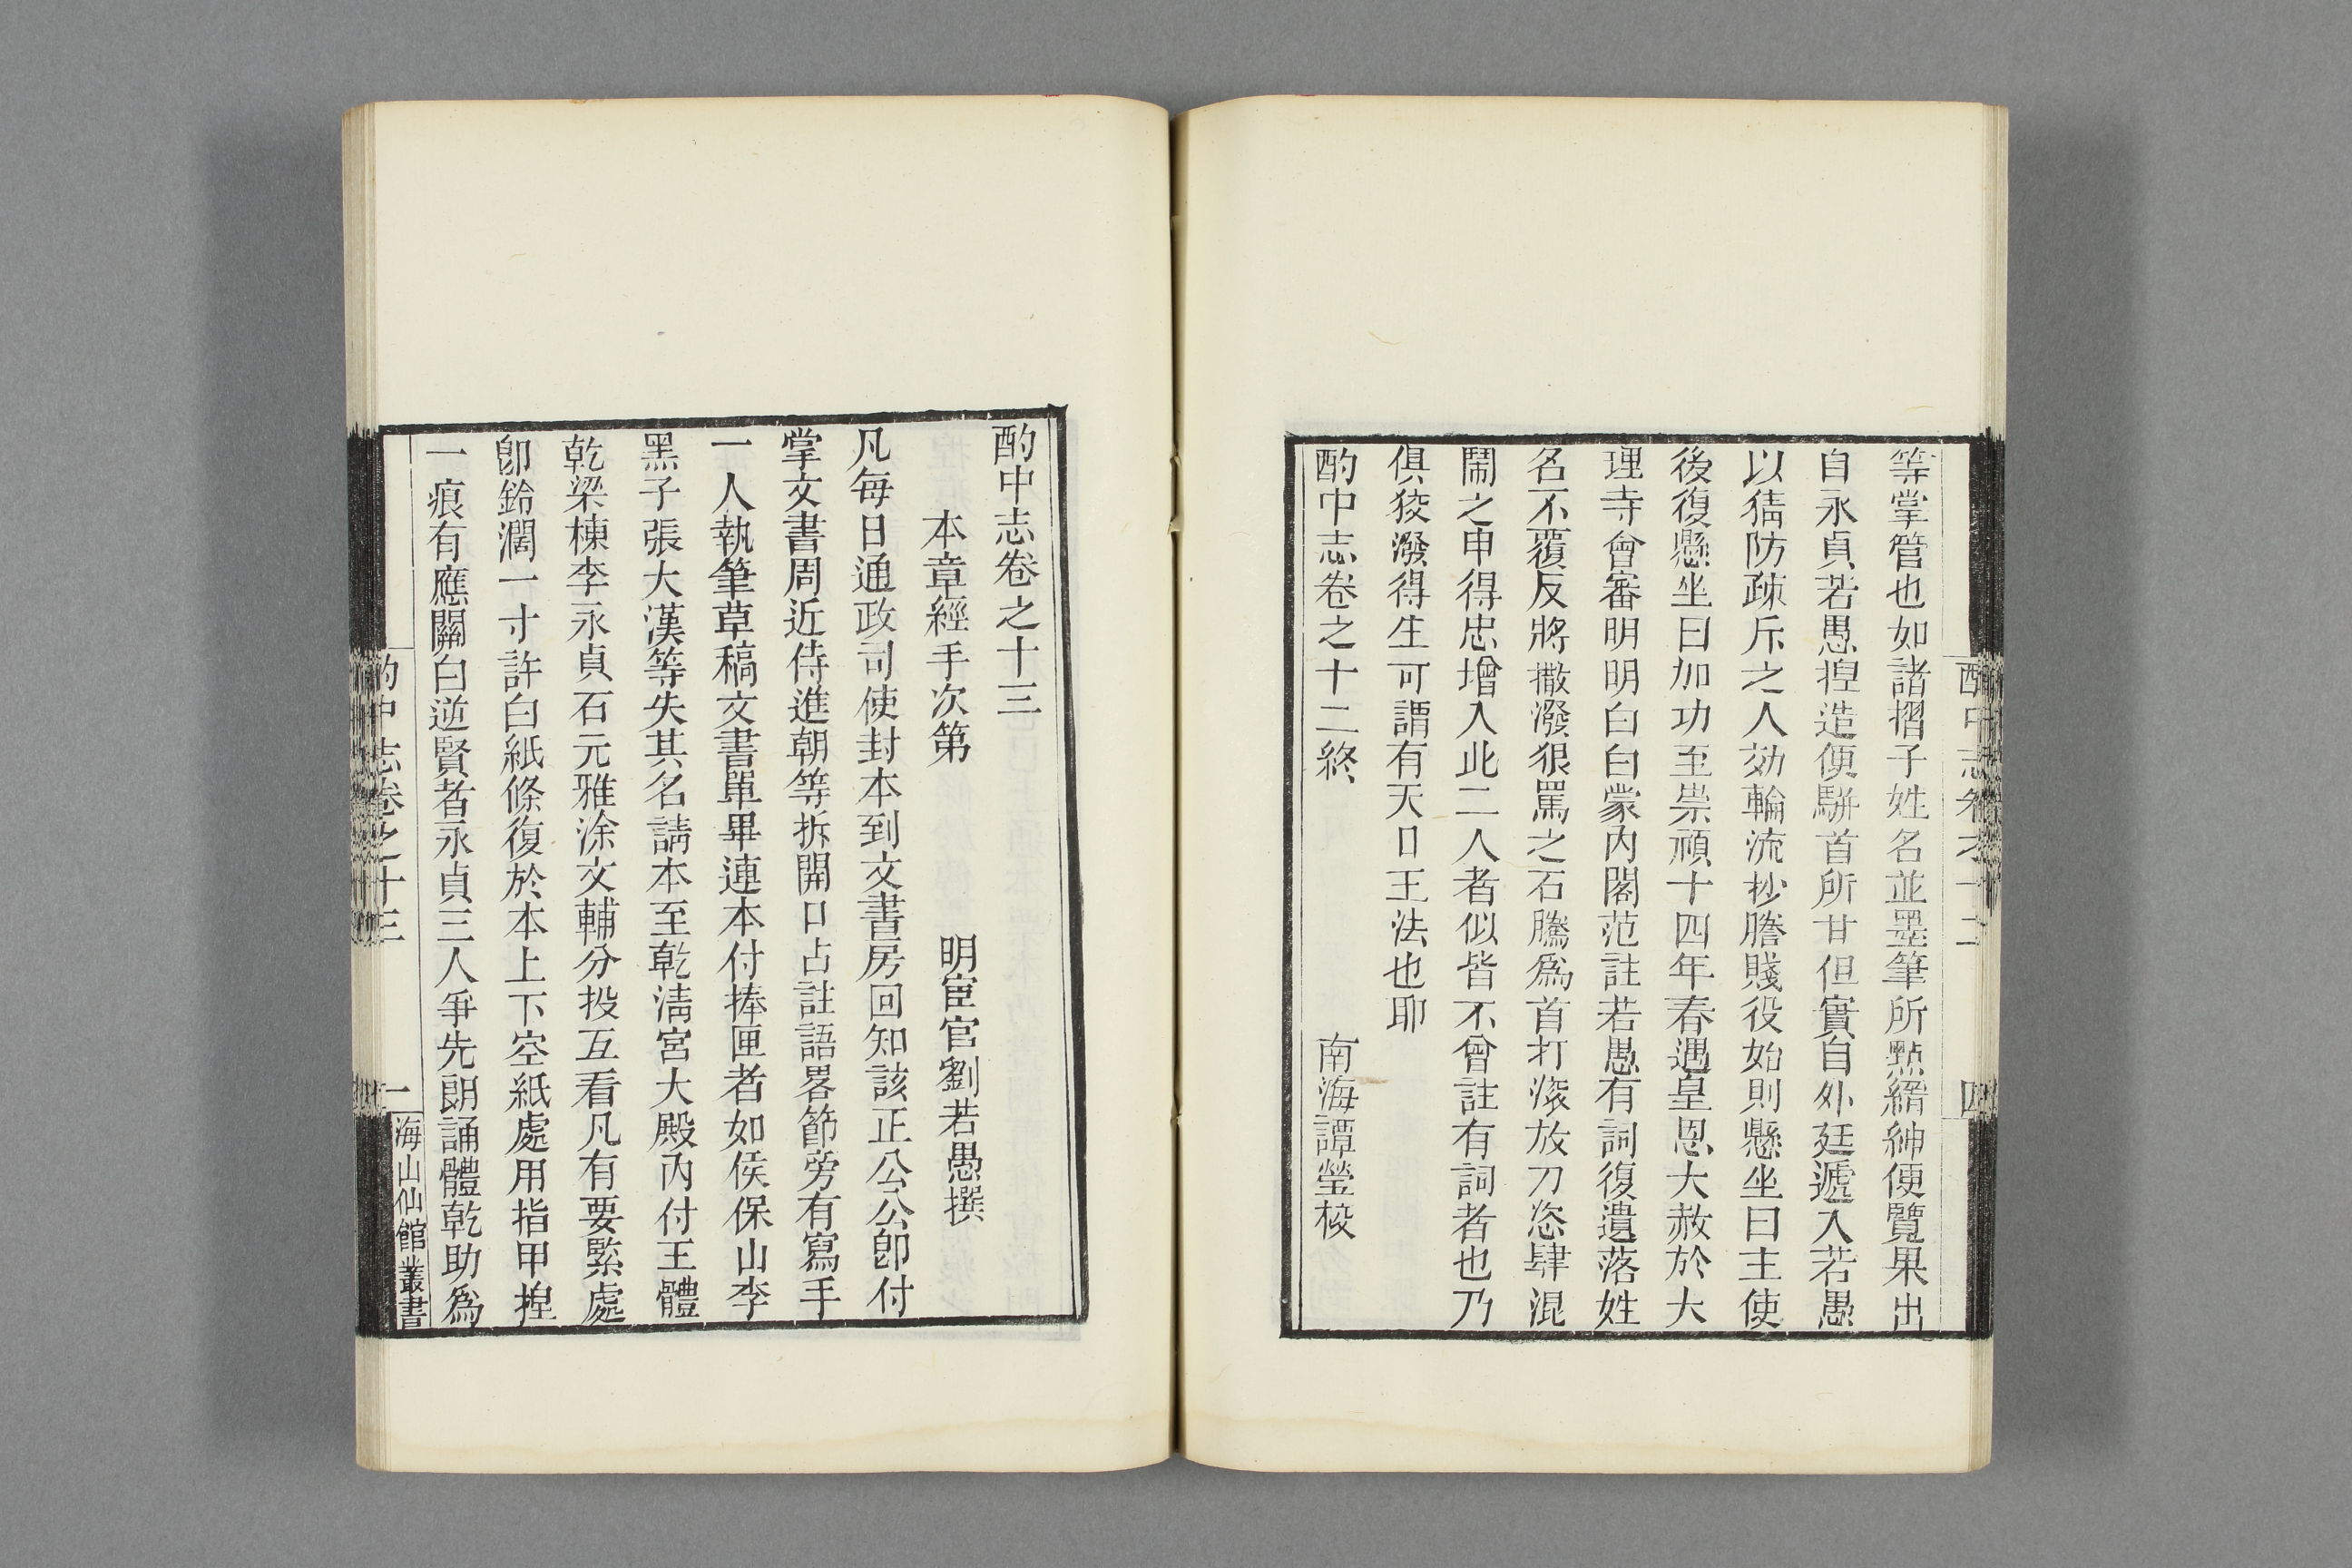 酌中志卷之十二
四
等掌管也如諸摺子姓名並墨筆所㸃縉紳便覽果出
自永貞若愚揑造便駢首所甘但實自外廷遞入若愚
以猜防疎斥之人効輪流抄謄賤役始則懸坐曰主使
後復懸坐曰加功至崇禎十四年春遇皇恩大赦於大
理寺會審明明白白蒙內閣范註若愚有詞復遺落姓
名不覆反將撒潑狠罵之石騰爲首打滚放刀恣肆混
鬧之申得忠增入此二人者似皆不曾註有詞者也乃
俱狡潑得生可謂有天日王法也耶
酌中志卷之十二終　南海譚瑩校
酌中志卷之十三
本章經手次第
明宦官劉若愚撰
凡每日通政司使封本到文書房回知該正公公卽付
掌文書周近侍進朝等拆開口占註語畧節旁有寫手
一人執筆草稿文書單畢連本付捧匣者如侯保山李
黑子張大漢等失其名請本至乾淸宮大殿內付王體
乾梁棟李永貞石元雅涂文輔分投互看凡有要緊處
卽鈴濶一寸許白紙條復於本上下空紙處用指甲揑
一痕有應關白逆賢者永貞三人爭先朗誦體乾助爲
酌中志卷之十三
一
海山仙館叢書